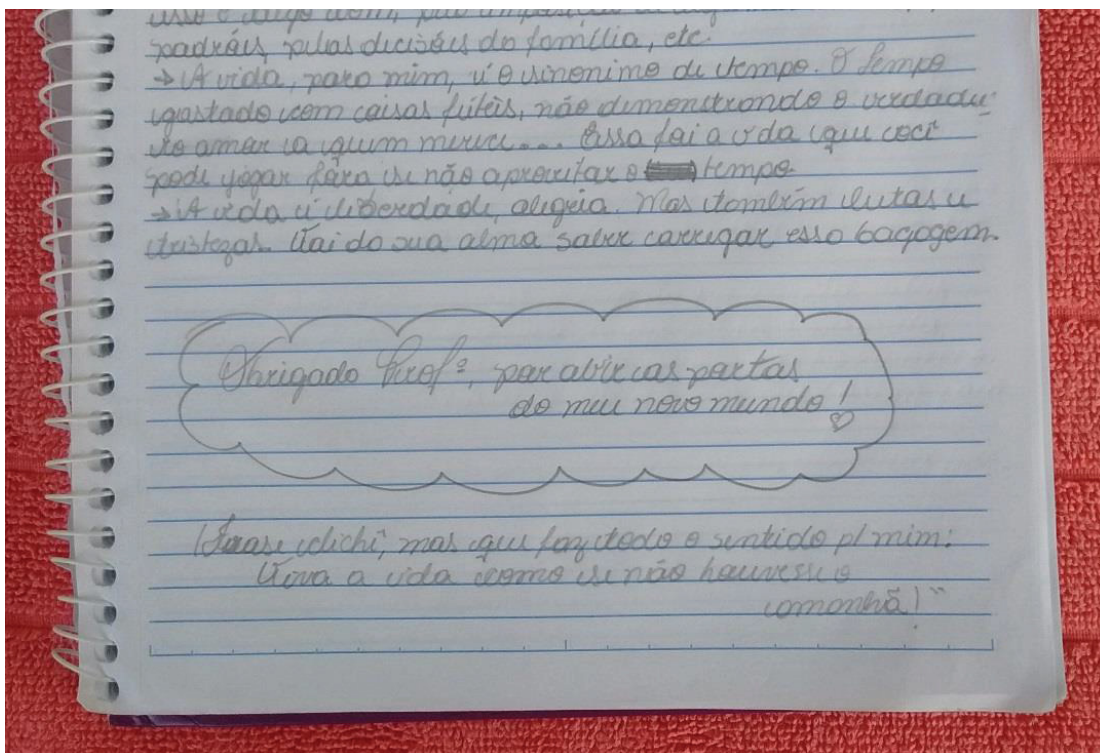 padrões, pelas decisões da família, etc.
→ A vida, para mim, é o sinonimo de tempo. O tempo
gastado com coisas fúteis, não demonstrando o verdadei-
ro amar a quem merece... Essa foi a vida que você
pode jogar fora se não aproveitar o tempo.
→ A vida é liberdade, alegria. Mas também lutas e
tristezas. Vai da sua alma saber carregar essa bagagem.
Obrigada Profª, por abrir as portas
do meu novo mundo! ♡
Frase clichê, mas que faz todo o sentido p/ mim:
Viva a vida como se não houvesse o
amanhã!"